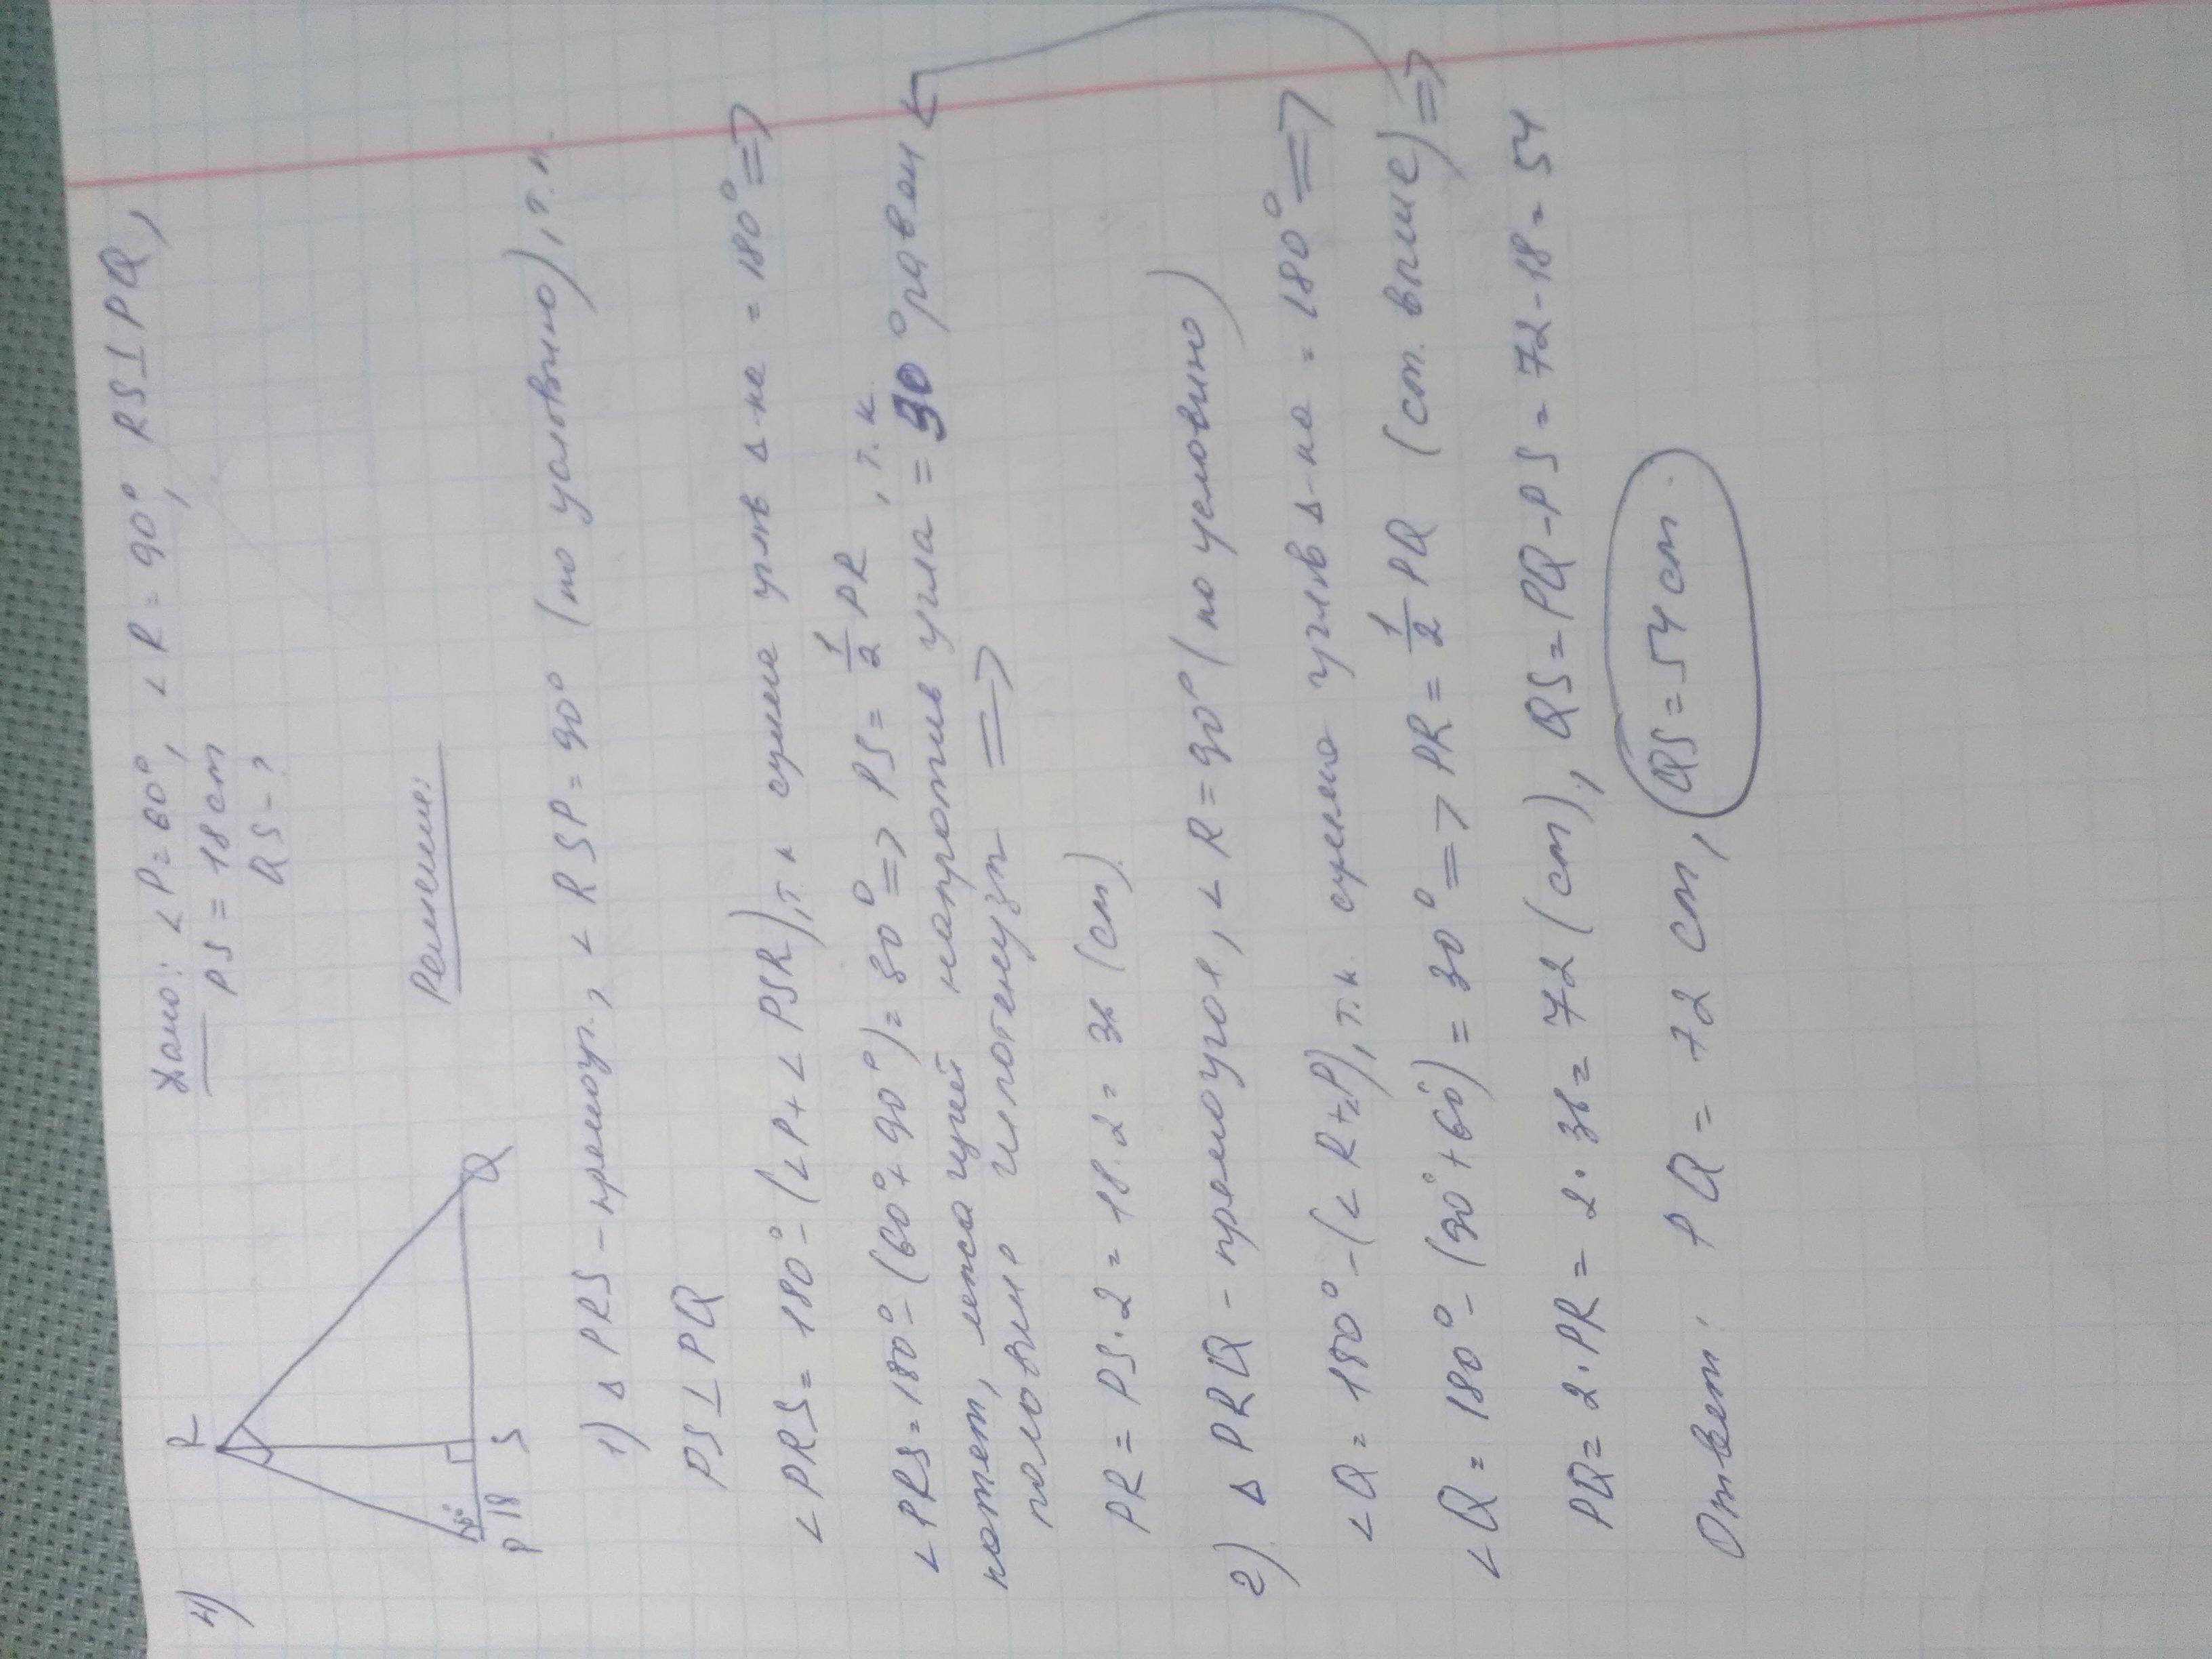 4)
R
60°
P 18 S Q
Дано: ∠P = 60°, ∠R = 90°, RS⊥PQ,
PS = 18 cm
QS - ?
Решение:
1) Δ PRS - прямоуг., ∠ RSP = 90° (по условию), т.к
PS⊥PQ
∠PRS = 180° - (∠P + ∠PSR), т.к сумма угл в Δ-ке = 180° =>
∠PRS = 180° - (60° + 90°) = 30° => PS = 1/2 PR, т.к
катет, лежащий напротив угла = 30° равен
половине гипотенузы =>
PR = PS · 2 = 18 · 2 = 36 (cm)
2) Δ PRQ - прямоугол., ∠R = 90° (по условию)
∠Q = 180° - (∠R + ∠P), т.к. сумма углв в Δ-ке = 180° =>
∠Q = 180° - (90° + 60°) = 30° => PR = 1/2 PQ (см. выше) =>
PQ = 2 · PR = 2 · 36 = 72 (cm), QS = PQ - PS = 72 - 18 = 54
Ответ: PQ = 72 cm, QS = 54 cm.